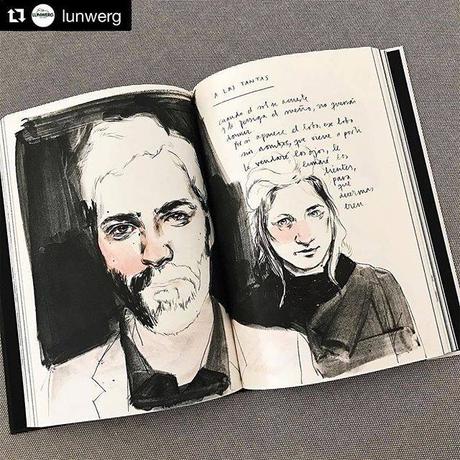 lunwerg
LUNWERG
A LAS TANTAS
cuando el sol se acueste
y te persiga el sueño, no querrás
dormir
Por si aparece el lobo, ese lobo
sin nombre, que viene a por ti
le vendaré los ojos, le
limaré los
dientes,
para
que
duermas
bien